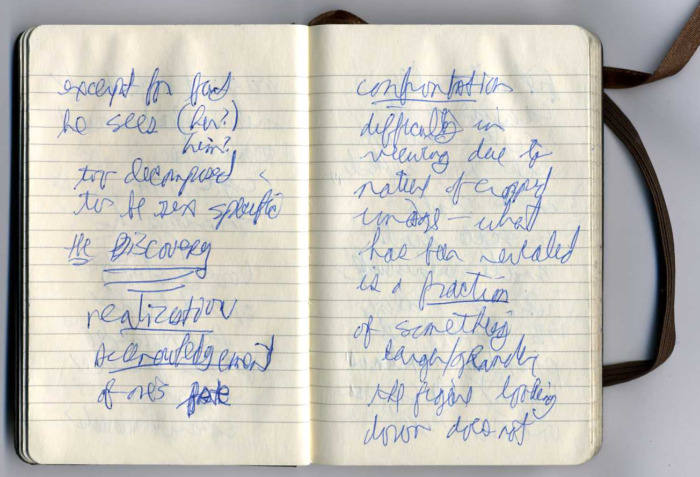 except for fact
he sees (her?)
him?
too decomposed
to be sex specific
the Discovery
realization
acknowledgement
of one's fate
confrontation
difficulty in
viewing due to
nature of cropped
image – what
has been revealed
is a fraction
of something
larger/grander
the figure looking
down does not